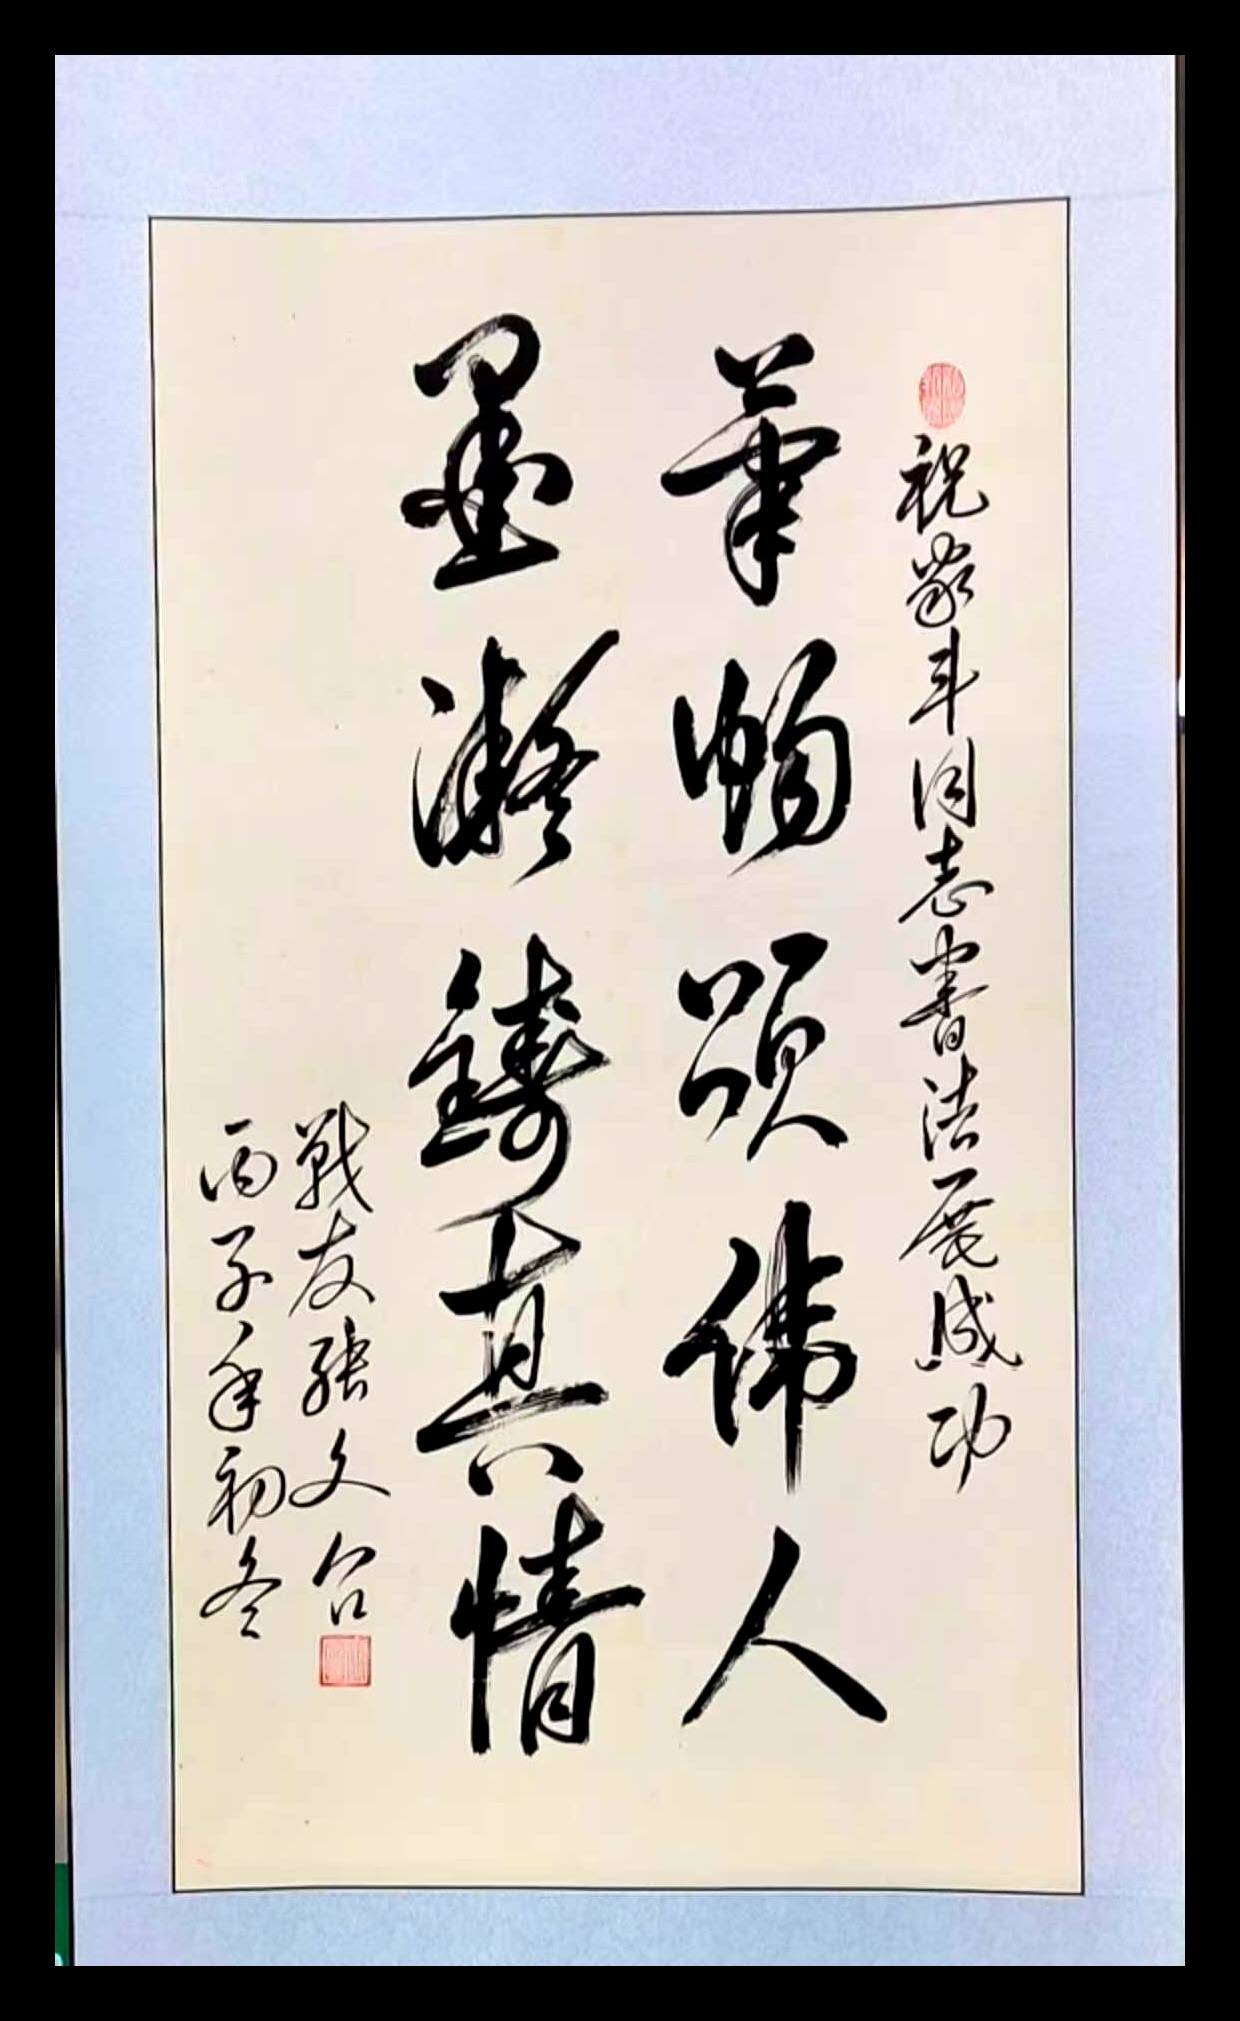 祝家斗同志書法展成功
筆暢頌偉人
墨凝鑄真情
戰友張文台
丙子年初冬